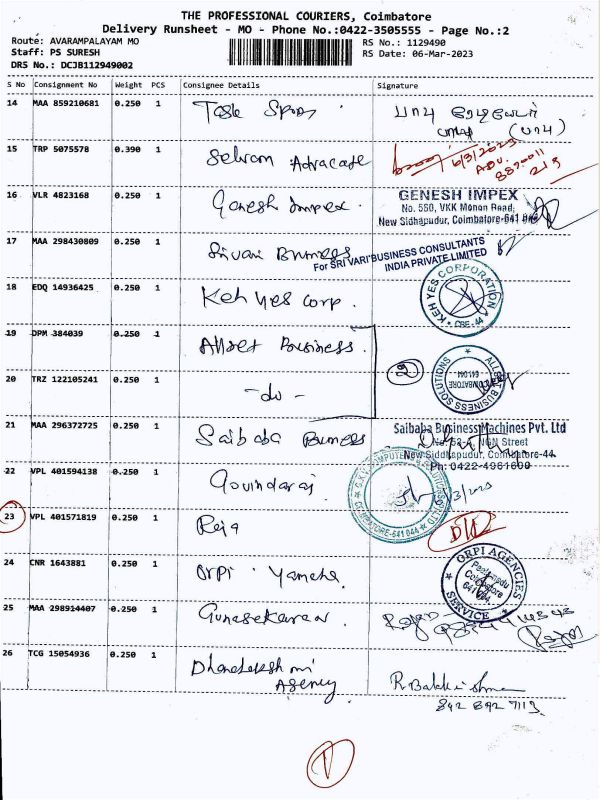 THE PROFESSIONAL COURIERS, Coimbatore
Delivery Runsheet - MO - Phone No.:0422-3505555 - Page No.:2
Route: AVARAMPALAYAM MO
Staff: PS SURESH
DRS No.: DCJB112949002
RS No.: 1129490
RS Date: 06-Mar-2023
S No Consignment No Weight PCS Consignee Details Signature
14 MAA 859210681 0.250 1
15 TRP 5075578 0.390 1 Selvam Advocate
6/3/2023
ADV.
213
16 VLR 4823168 0.250 1 Ganesh Impex.
GENESH IMPEX
No. 560, VKK Monon Road,
New Sidhapudur, Coimbatore-641 0
17 MAA 298430809 0.250 1 Srivari Business
For SRI VARI BUSINESS CONSULTANTS
INDIA PRIVATE LIMITED
18 EDQ 14936425 0.250 1 Keh Yes Corp.
KEH YES CORPORATION
CBE-44
19 DPM 384039 0.250 1 Allset Business.
2
ALLSET BUSINESS SOLUTIONS
COIMBATORE
641 044
20 TRZ 122105241 0.250 1 -do-
21 MAA 296372725 0.250 1 Saibaba Business
Saibaba Business Machines Pvt. Ltd
NGN Street
New Siddhapudur, Coimbatore-44
Ph: 0422-4961600
22 VPL 401594138 0.250 1 Govindaraj.
COIMBATORE-641 044
6/3/2023
23 VPL 401571819 0.250 1 Raja
24 CNR 1643881 0.250 1 Orpi Yamaha.
ORPI AGENCIES
Coimbatore
SERVICE
25 MAA 298914407 0.250 1 Gunasekaran.
Rajan
26 TCG 15054936 0.250 1 Dhanalakshmi
Agency
R. Balakrishnan
842 692 7113
1